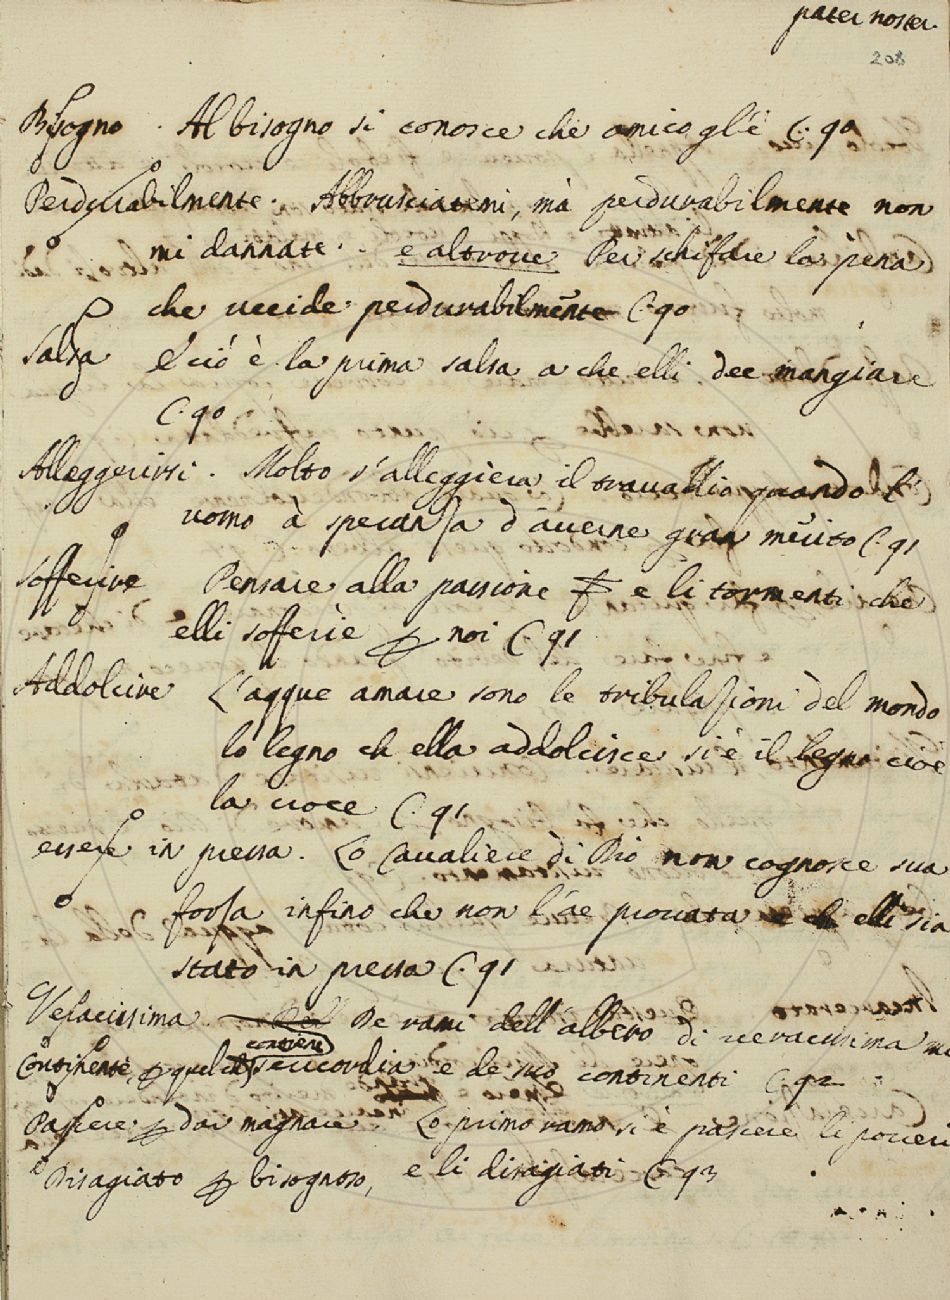 pater noster.
208
Bisogno. Al bisogno si conosce che amico gl'è C. 90
Perdurabilmente. Abbrusciatemi, mà perdurabilmente non
mi dannate. e altrove Per schifare la pena
che uccide perdurabilmente C. 90
Salsa E ciò è la prima salsa a che elli dee mangiare
C. 90
Alleggerirsi. Molto s'alleggiera il travaglio quando l'
uomo à speransa d'averne gran merito C. 91
Sofferire Pensare alla passione e li tormenti che
elli sofferìe noi C. 91
Addolcire L'aqque amare sono le tribulasioni del mondo
lo legno ch ella addolcisce si è il legno cioè
la croce C. 91
essere in pressa. Lo Cavaliere di Dio non cognosce sua
forsa infino che non l'ae provata e ch elli sia
stato in pressa C. 91
Veracissima De rami dell'albero di veracissima mi
contiene
Continente, quel che sericordia e de suo continenti C. 92
Pascere dar magnare. Lo primo ramo si è pascere li poveri
Disagiato bisognoso, e li disagiati C. 93